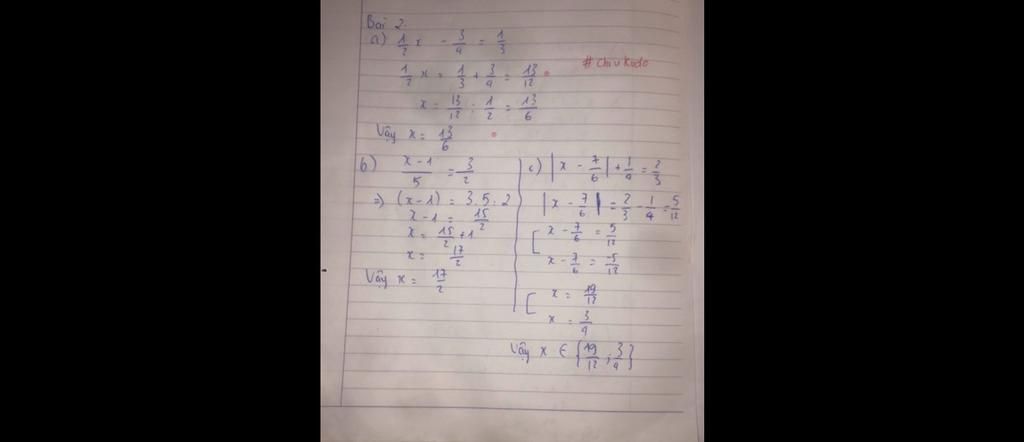 Bài 2.
a) 1/2 x - 3/4 = 1/3
1/2 x = 1/3 + 3/4 = 13/12
#chiukudo
x = 13/12 : 1/2 = 13/6
Vậy x = 13/6
b) x-1/5 = 3/2
=> (x-1) = 3.5:2
x-1 = 15/2
x = 15/2 + 1
x = 17/2
Vậy x = 17/2
c) |x - 7/6| + 1/4 = 2/3
|x - 7/6| = 2/3 - 1/4 = 5/12
[ x - 7/6 = 5/12
x - 7/6 = -5/12
[ x = 19/12
x = 3/4
Vậy x ∈ {19/12 ; 3/4}